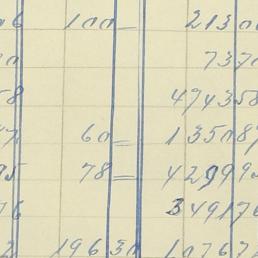 06 100— 21300
0 7370
58 474358
47 60= 135087
95 78= 42999
76 349176
2 196 30 107672